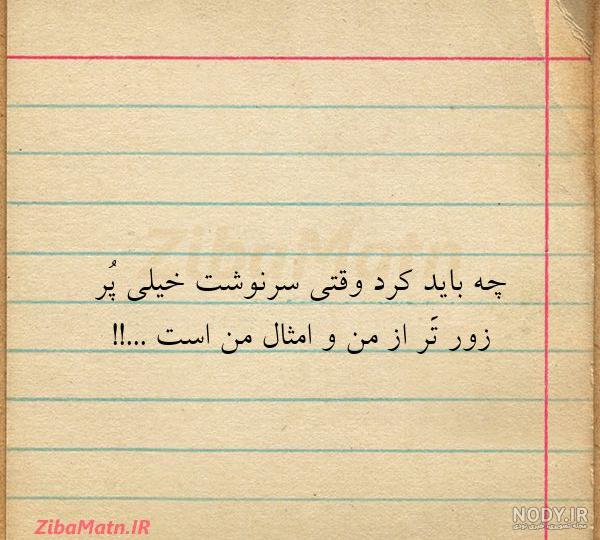 ZibaMatn
چه باید کرد وقتی سرنوشت خیلی پُر
زور تَر از من و امثال من است ...!!
ZibaMatn.IR
NODY.IR
مجله تصویری، خبری نودی